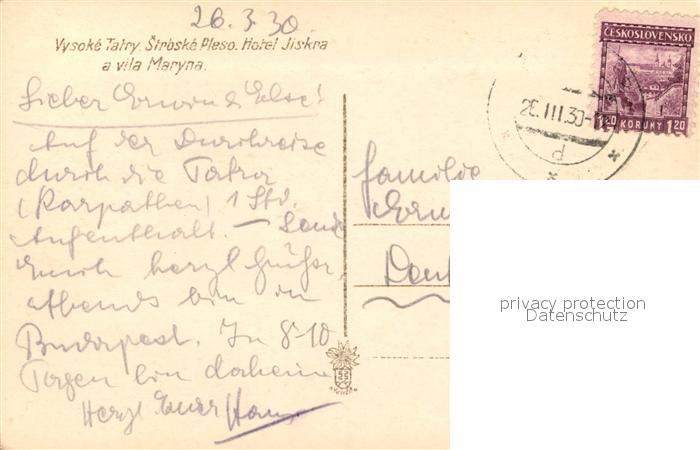 26.3.30
Vysoké Tatry. Štrbské Pleso. Hotel Jiskra
a vila Maryna.
Lieber Erwin & Else!
Auf der Durchreise
durch die Tatra
(Karpathen) 1 Std.
Aufenthalt. – Sende
Euch herzl Grüße,
abends bin in
Budapest. In 8-10
Tagen bin daheim
Herzl Euer Hans
ČESKOSLOVENSKO
1.20 KORUNY 1.20
26.III.30
d
Familie
Erw
Deut
privacy protection
Datenschutz